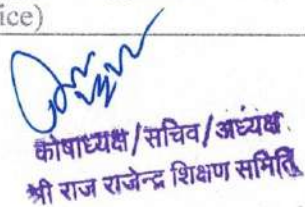 ice)
कोषाध्यक्ष/सचिव/अध्यक्ष
श्री राज राजेन्द्र शिक्षण समिति